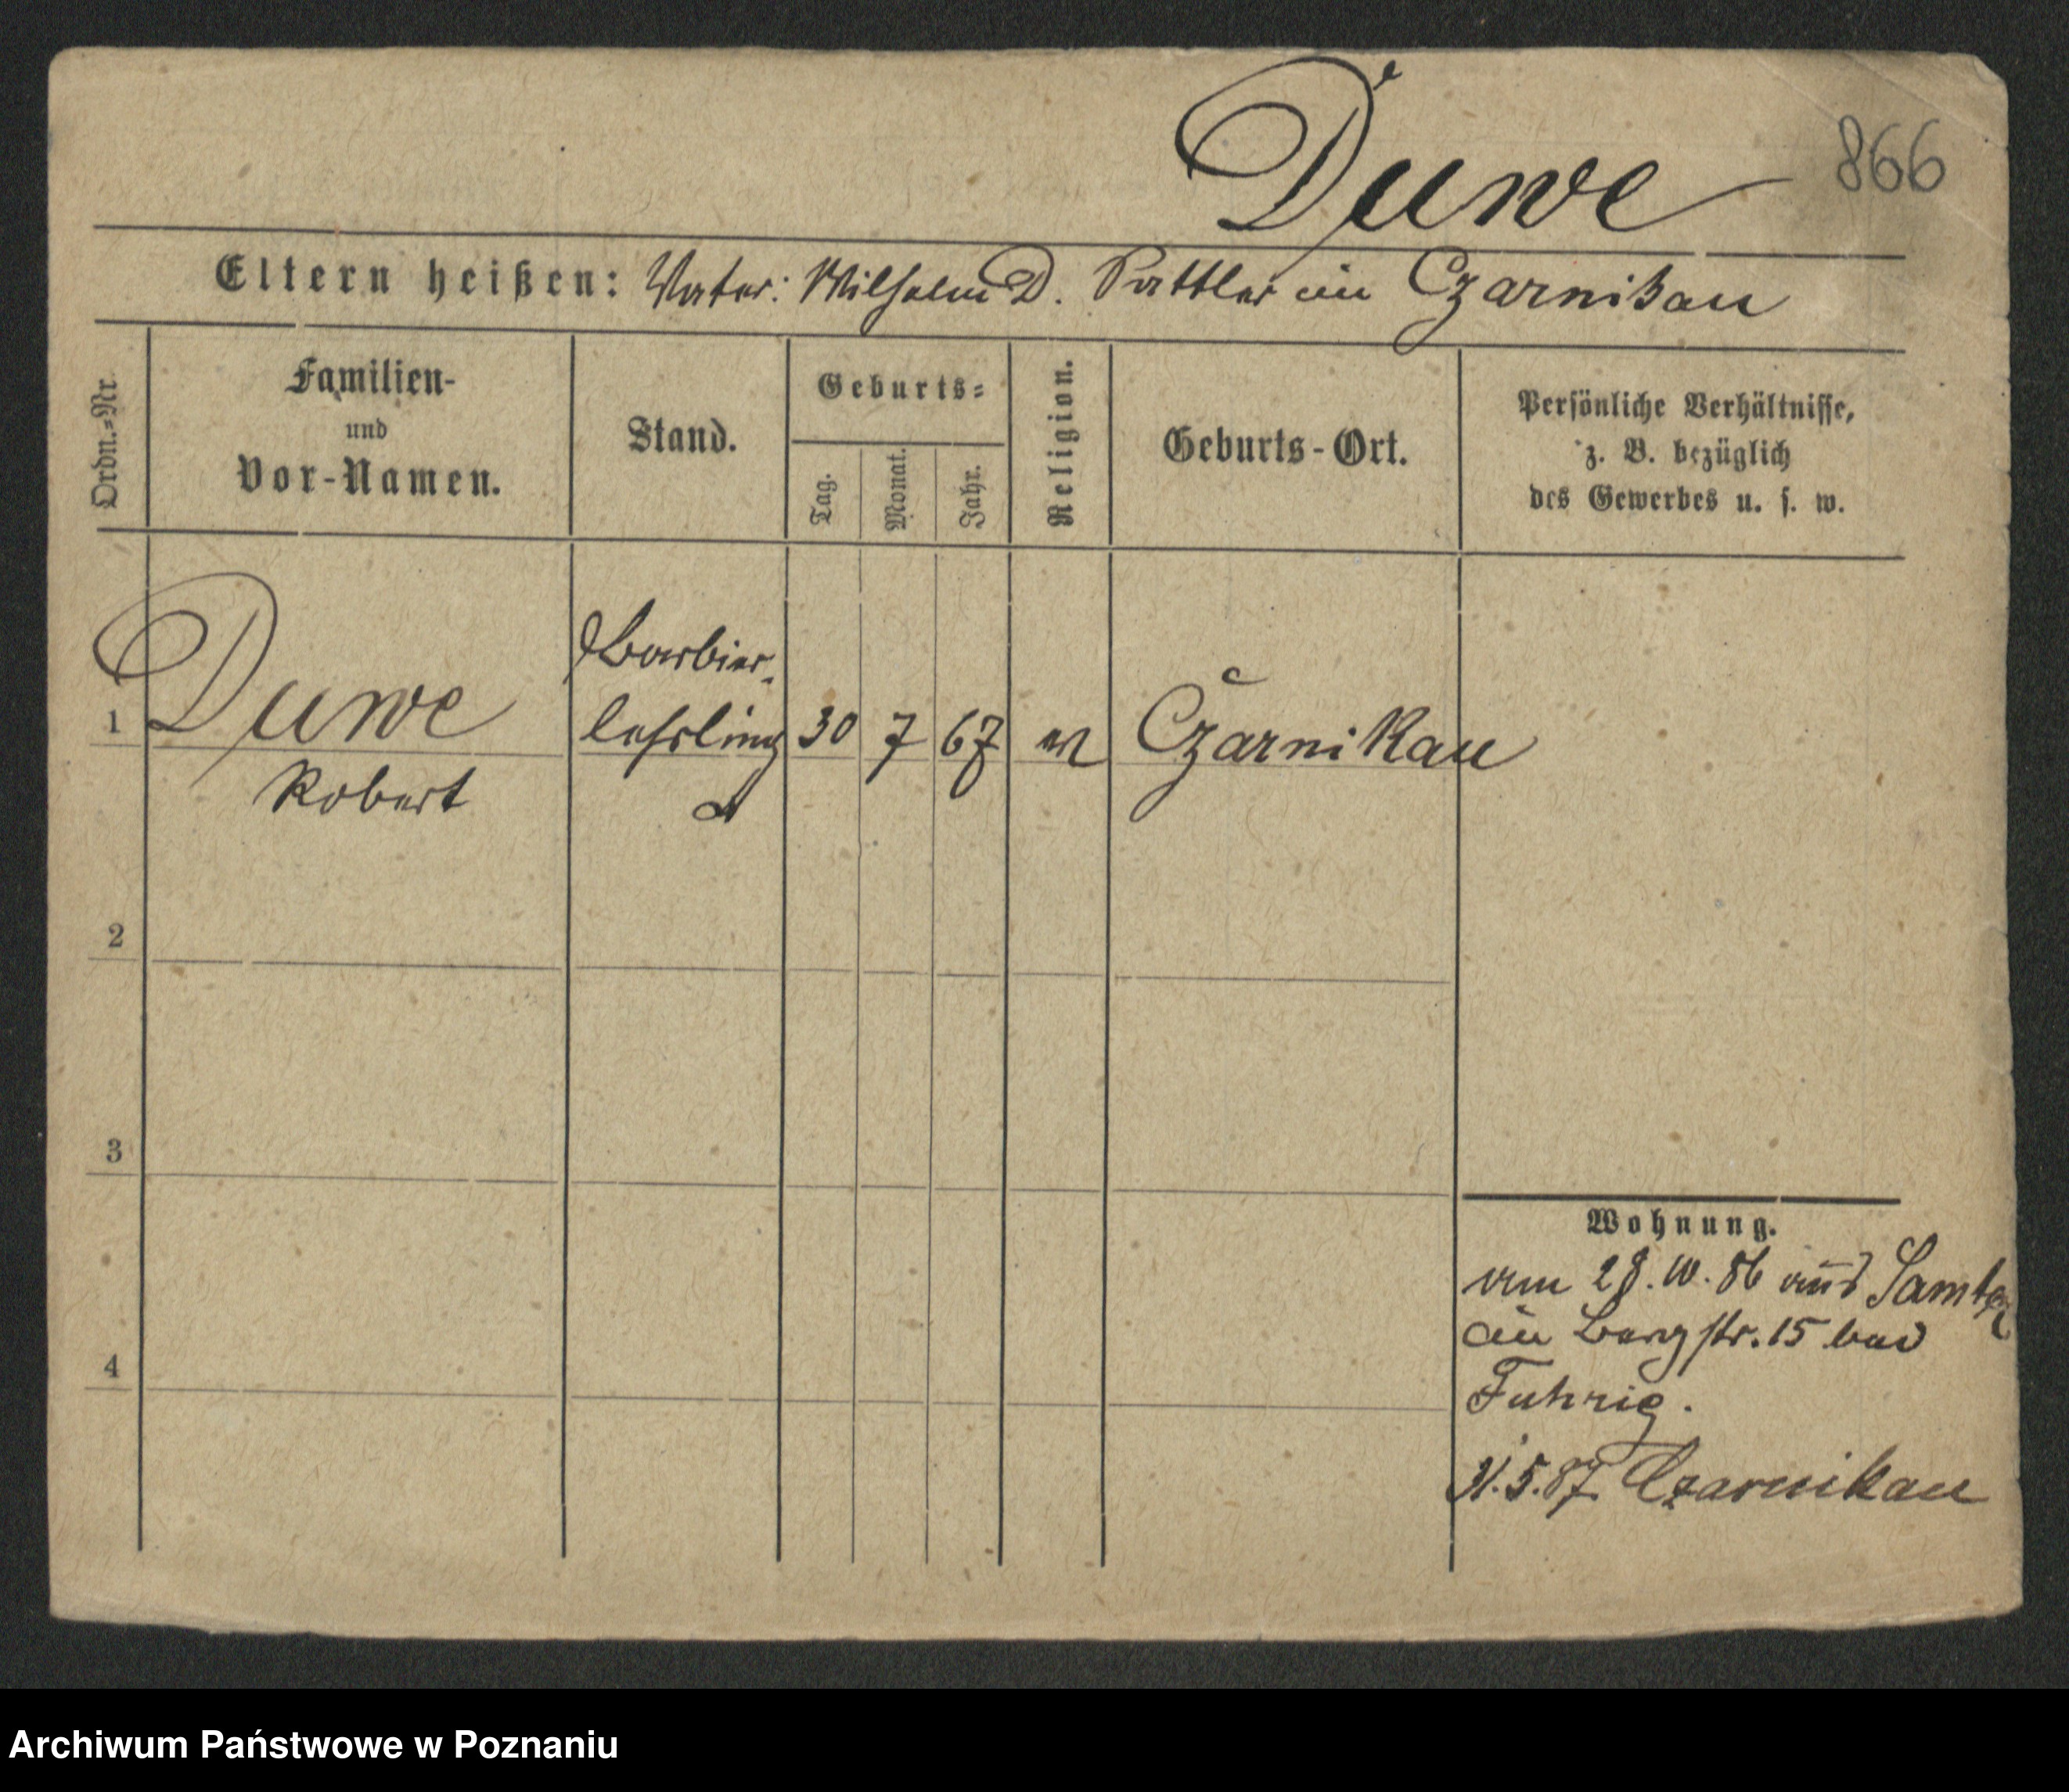 Duwe 866
Eltern heißen: Vater: Wilhelm D. Sattler in Czarnikau
Ordn.-Nr.
Familien-
und
Vor-Namen.
Stand.
Geburts-
Tag.
Monat.
Jahr.
Religion.
Geburts-Ort.
Persönliche Verhältnisse,
z. B. bezüglich
des Gewerbes u. s. w.
Barbier-
1 Duwe lehrling 30 7 67 Czarnikau
Robert
2
3
4
Wohnung.
28. 10. 86 aus
in Berg str. 15 bei
Fuhrig.
5. 87. Czarnikau
Archiwum Państwowe w Poznaniu